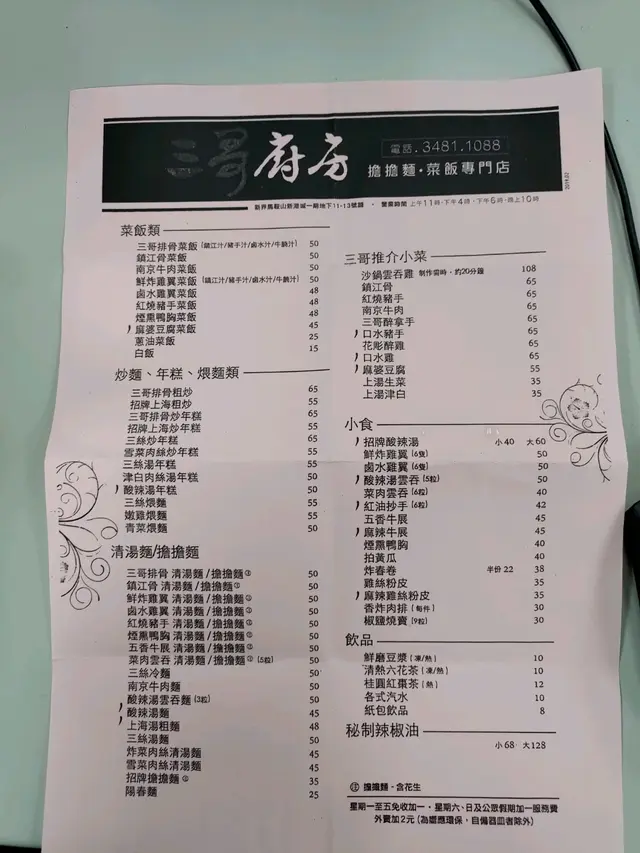 三哥廚房
電話.3481.1088
擔擔麵·菜飯專門店
2019.02
新界馬鞍山新港城一期地下11-13號舖 · 營業時間 上午11時-下午4時,下午6時-晚上10時
菜飯類
三哥排骨菜飯 (鎮江汁/豬手汁/鹵水汁/牛腩汁) 50
鎮江骨菜飯 50
南京牛肉菜飯 50
鮮炸雞翼菜飯 (鎮江汁/豬手汁/鹵水汁/牛腩汁) 50
鹵水雞翼菜飯 48
紅燒豬手菜飯 48
煙熏鴨胸菜飯 48
麻婆豆腐菜飯 45
蔥油菜飯 25
白飯 15
炒麵、年糕、煨麵類
三哥排骨粗炒 65
招牌上海粗炒 55
三哥排骨炒年糕 65
招牌上海炒年糕 55
三絲炒年糕 65
雪菜肉絲炒年糕 55
三絲湯年糕 55
津白肉絲湯年糕 50
酸辣湯年糕 50
三絲煨麵 55
嫩雞煨麵 55
青菜煨麵 50
清湯麵/擔擔麵
三哥排骨 清湯麵/擔擔麵㊟ 50
鎮江骨 清湯麵/擔擔麵㊟ 50
鮮炸雞翼 清湯麵/擔擔麵㊟ 50
鹵水雞翼 清湯麵/擔擔麵㊟ 50
紅燒豬手 清湯麵/擔擔麵㊟ 50
煙熏鴨胸 清湯麵/擔擔麵㊟ 50
五香牛展 清湯麵/擔擔麵㊟ 50
菜肉雲吞 清湯麵/擔擔麵㊟ (5粒) 50
三絲冷麵 50
南京牛肉麵 50
酸辣湯雲吞麵 (3粒) 50
酸辣湯麵 45
上海湯粗麵 48
三絲湯麵 50
炸菜肉絲清湯麵 45
雪菜肉絲清湯麵 45
招牌擔擔麵㊟ 35
陽春麵 25
三哥推介小菜
沙鍋雲吞雞 制作需時,約20分鐘 108
鎮江骨 65
紅燒豬手 65
南京牛肉 65
三哥醉拿手 65
口水豬手 65
花彫醉雞 65
口水雞 65
麻婆豆腐 55
上湯生菜 35
上湯津白 35
小食
招牌酸辣湯 小40 大60
鮮炸雞翼 (6隻) 50
鹵水雞翼 (6隻) 50
酸辣湯雲吞 (5粒) 50
菜肉雲吞 (6粒) 40
紅油抄手 (6粒) 42
五香牛展 45
麻辣牛展 45
煙熏鴨胸 40
拍黃瓜 40
炸春卷 半份22 38
雞絲粉皮 35
麻辣雞絲粉皮 35
香炸肉排 (每件) 30
椒鹽燒賣 (9粒) 30
飲品
鮮磨豆漿 (凍/熱) 10
清熱六花茶 (凍/熱) 10
桂圓紅棗茶 (熱) 12
各式汽水 10
紙包飲品 8
秘制辣椒油
小68 · 大128
㊟ 擔擔麵·含花生
星期一至五免收加一·星期六、日及公眾假期加一服務費
外賣加2元 (為響應環保,自備器皿者除外)